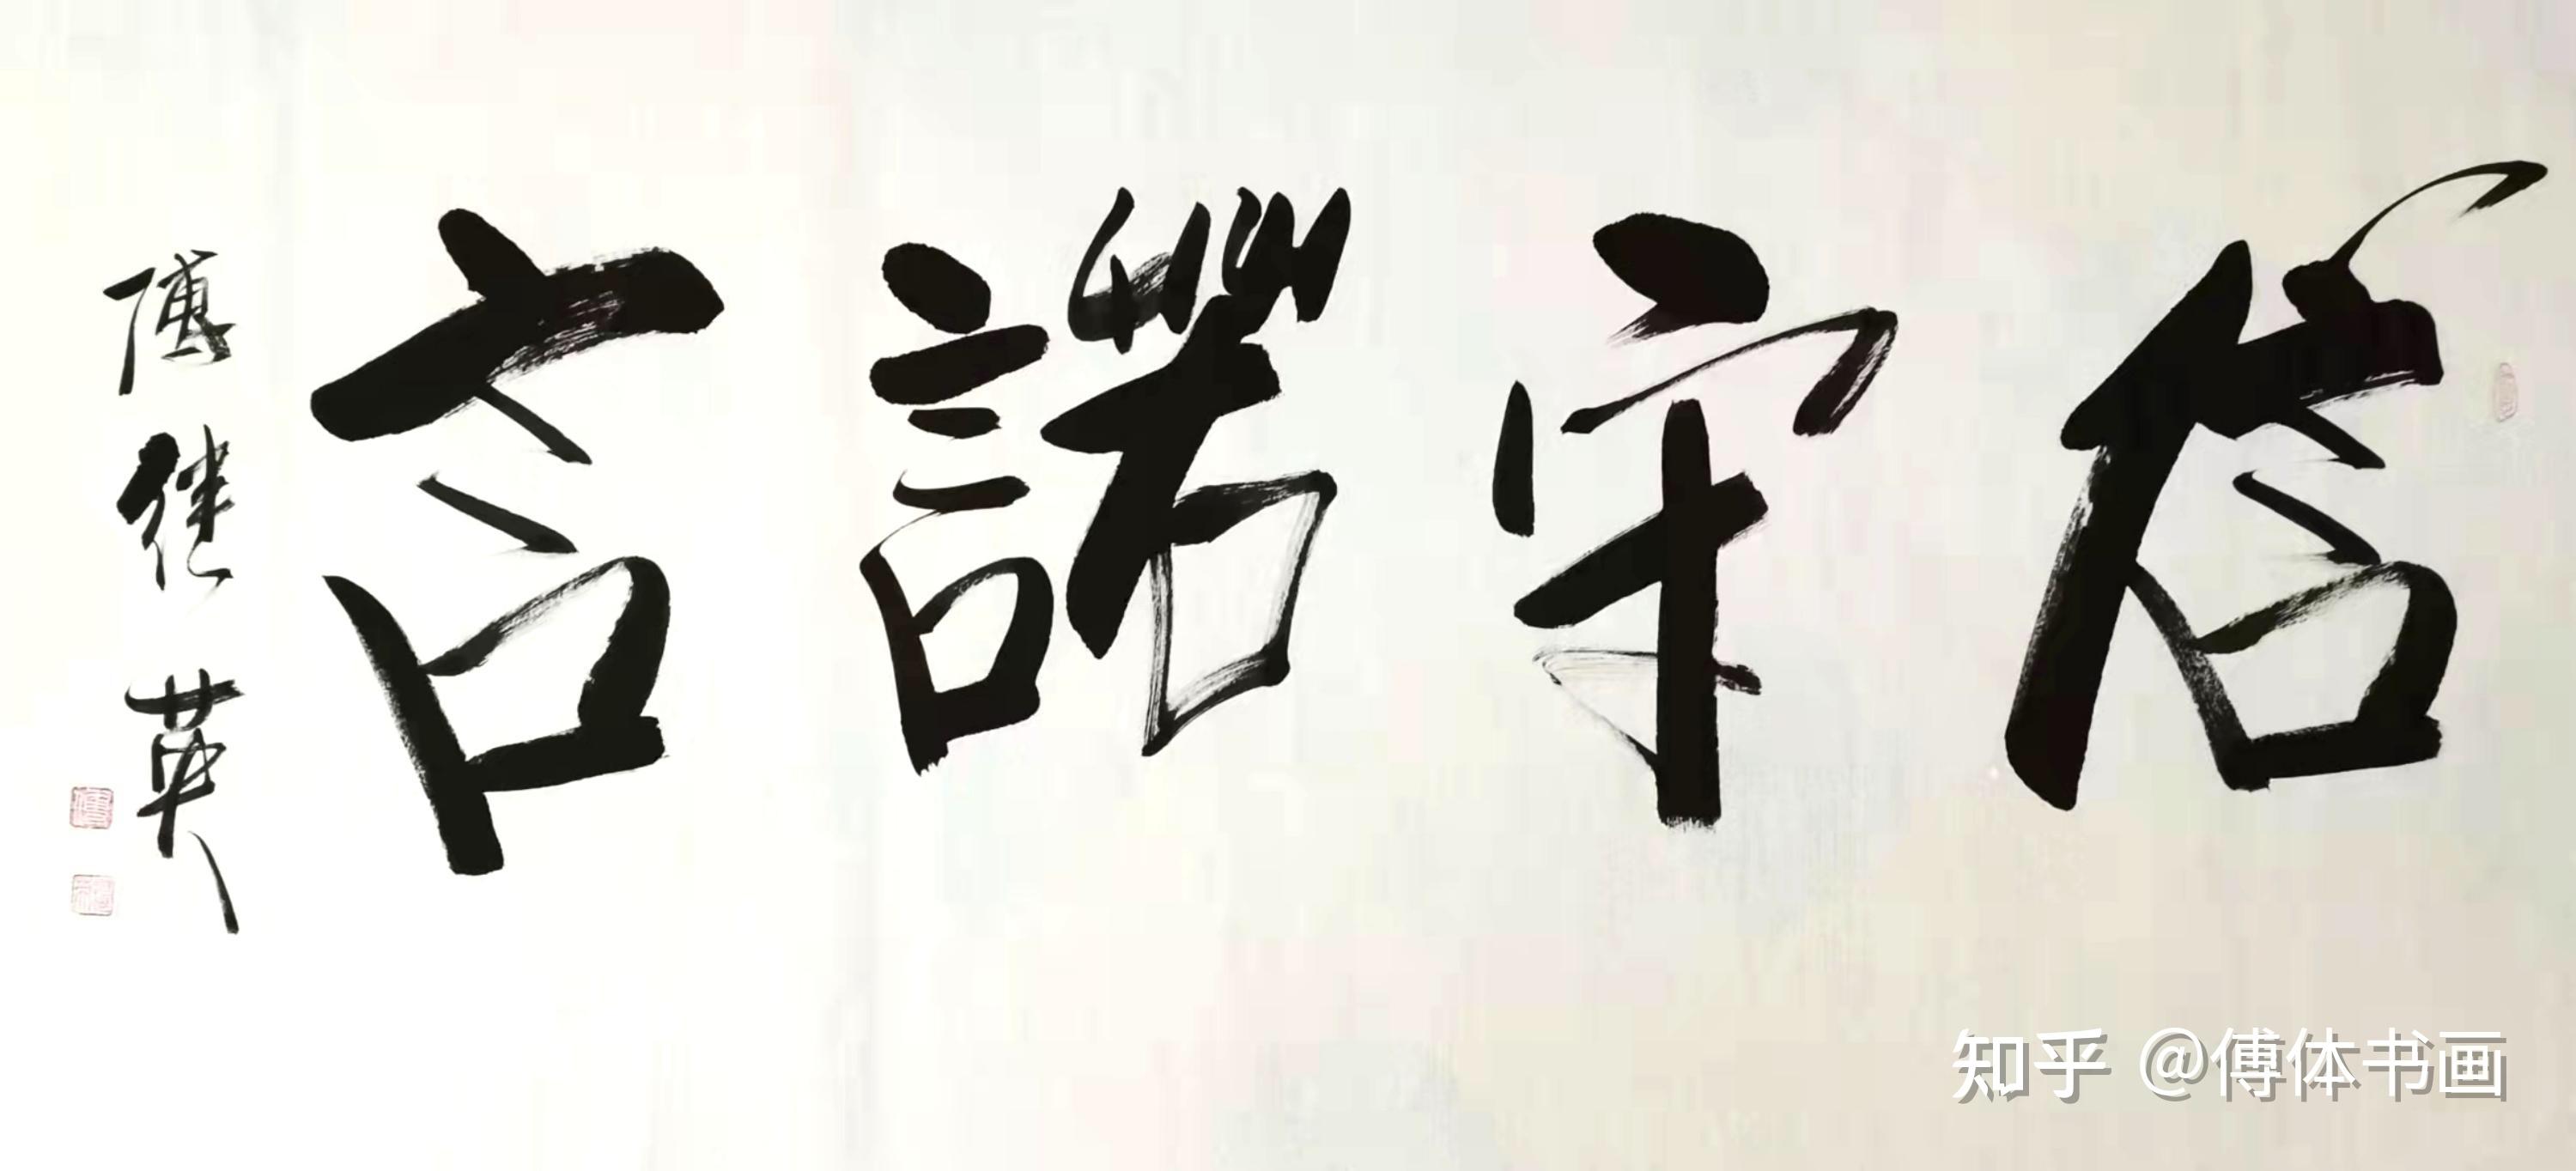 信守諾言
傅继英
知乎 @傅体书画